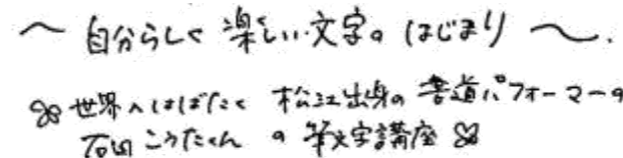 〜 自分らしく 楽しい文字の はじまり 〜.
世界へはばたく 松江出身の 書道パフォーマーの
石田 こうたくん の 筆文字講座